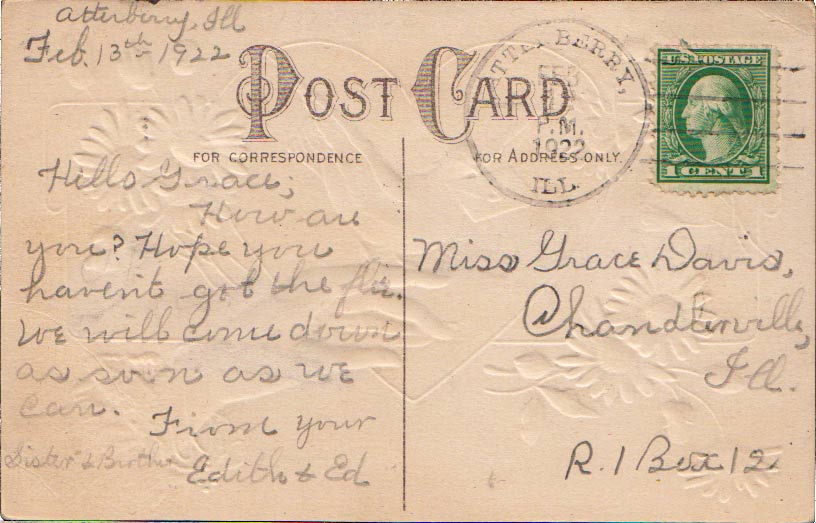 Atterberry, Ill
Feb. 13th 1922
POST CARD
FOR CORRESPONDENCE
FOR ADDRESS ONLY.
ATTERBERRY,
FEB
P.M.
1922
ILL.
U.S. POSTAGE
1 CENT 1
Hello Grace;
How are
you? Hope you
havent got the flu.
We will come down
as soon as we
can.
From your
Sister & Brother
Edith & Ed
Miss Grace Davis,
Chandlerville,
Ill.
R. 1 Box 12.